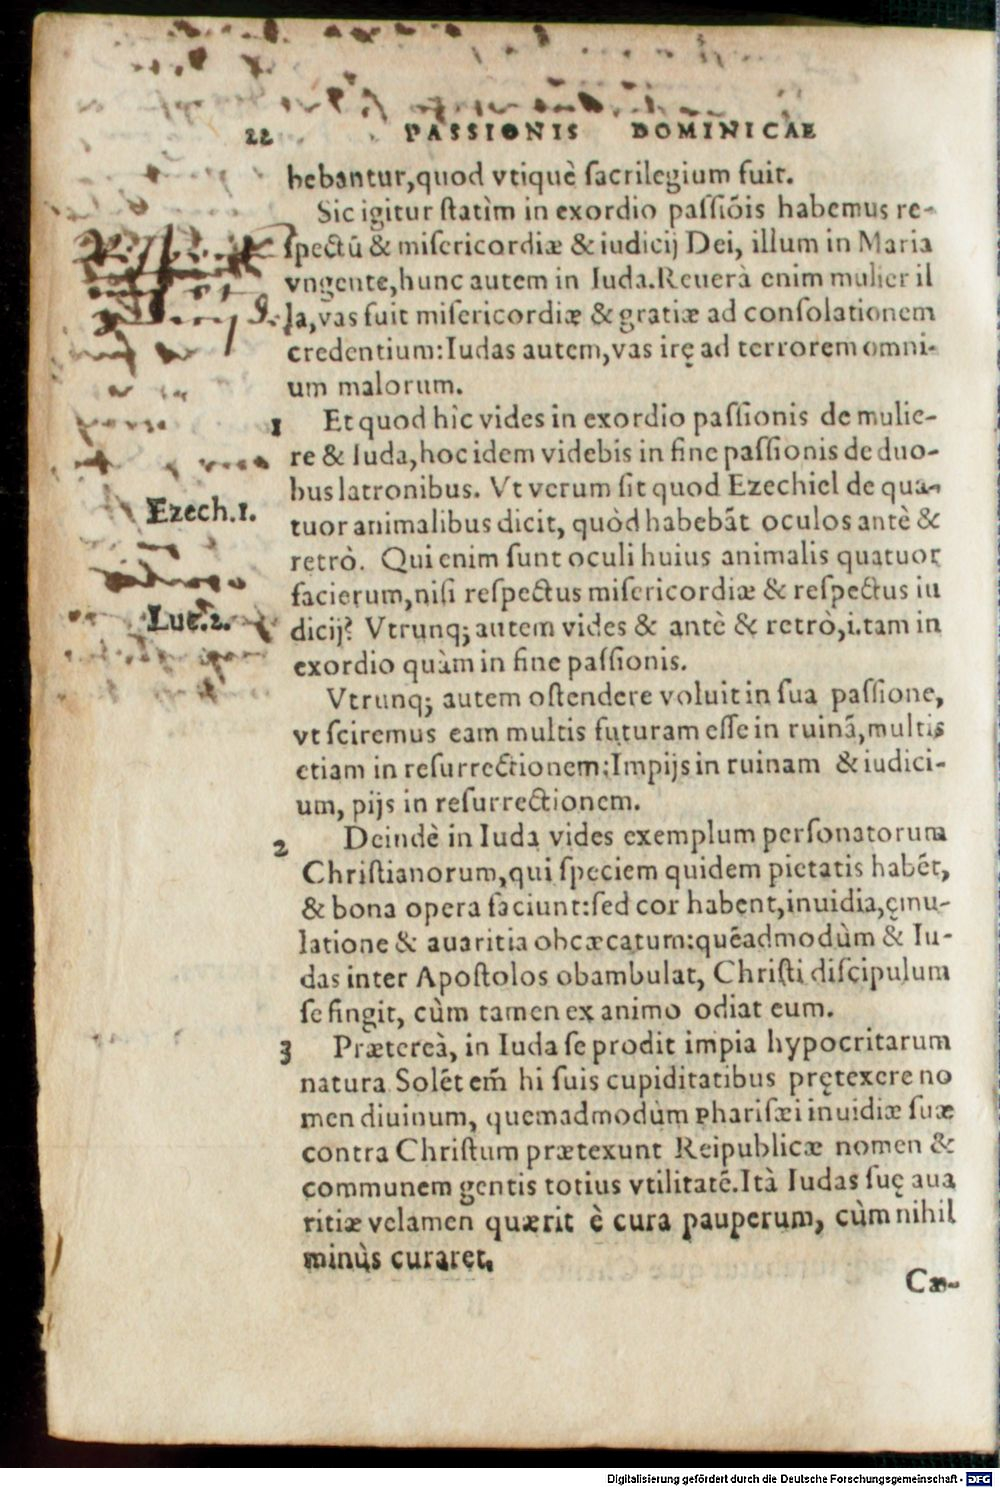 22 PASSIONIS DOMINICAE
hebantur,quod vtiquè sacrilegium fuit.
Sic igitur statìm in exordio passiõis habemus re-
spectũ & misericordiæ & iudicij Dei, illum in Maria
vngente,hunc autem in Iuda.Reuerà enim mulier il
la,vas fuit misericordiæ & gratiæ ad consolationem
credentium:Iudas autem,vas irę ad terrorem omni-
um malorum.
1 Et quod hìc vides in exordio passionis de mulie-
re & Iuda,hoc idem videbis in fine passionis de duo-
bus latronibus. Vt verum sit quod Ezechiel de qua-
Ezech.1.
tuor animalibus dicit, quòd habebãt oculos antè &
retrò. Qui enim sunt oculi huius animalis quatuor
facierum,nisi respectus misericordiæ & respectus iu
Luc.2.
dicij? Vtrunq; autem vides & antè & retrò,i.tam in
exordio quàm in fine passionis.
Vtrunq; autem ostendere voluit in sua passione,
vt sciremus eam multis futuram esse in ruinã,multis
etiam in resurrectionem:Impijs in ruinam & iudici-
um, pijs in resurrectionem.
2 Deindè in Iuda vides exemplum personatorum
Christianorum,qui speciem quidem pietatis habẽt,
& bona opera faciunt:sed cor habent,inuidia,ęmu-
latione & auaritia obcæcatum:quẽadmodùm & Iu-
das inter Apostolos obambulat, Christi discipulum
se fingit, cùm tamen ex animo odiat eum.
3 Prætereà, in Iuda se prodit impia hypocritarum
natura Solẽt em̃ hi suis cupiditatibus prętexere no
men diuinum, quemadmodùm pharisæi inuidiæ suæ
contra Christum prætexunt Reipublicæ nomen &
communem gentis totius vtilitatẽ.Ità Iudas suę aua
ritiæ velamen quærit è cura pauperum, cùm nihil
minùs curaret.
Cæ-
Digitalisierung gefördert durch die Deutsche Forschungsgemeinschaft - DFG